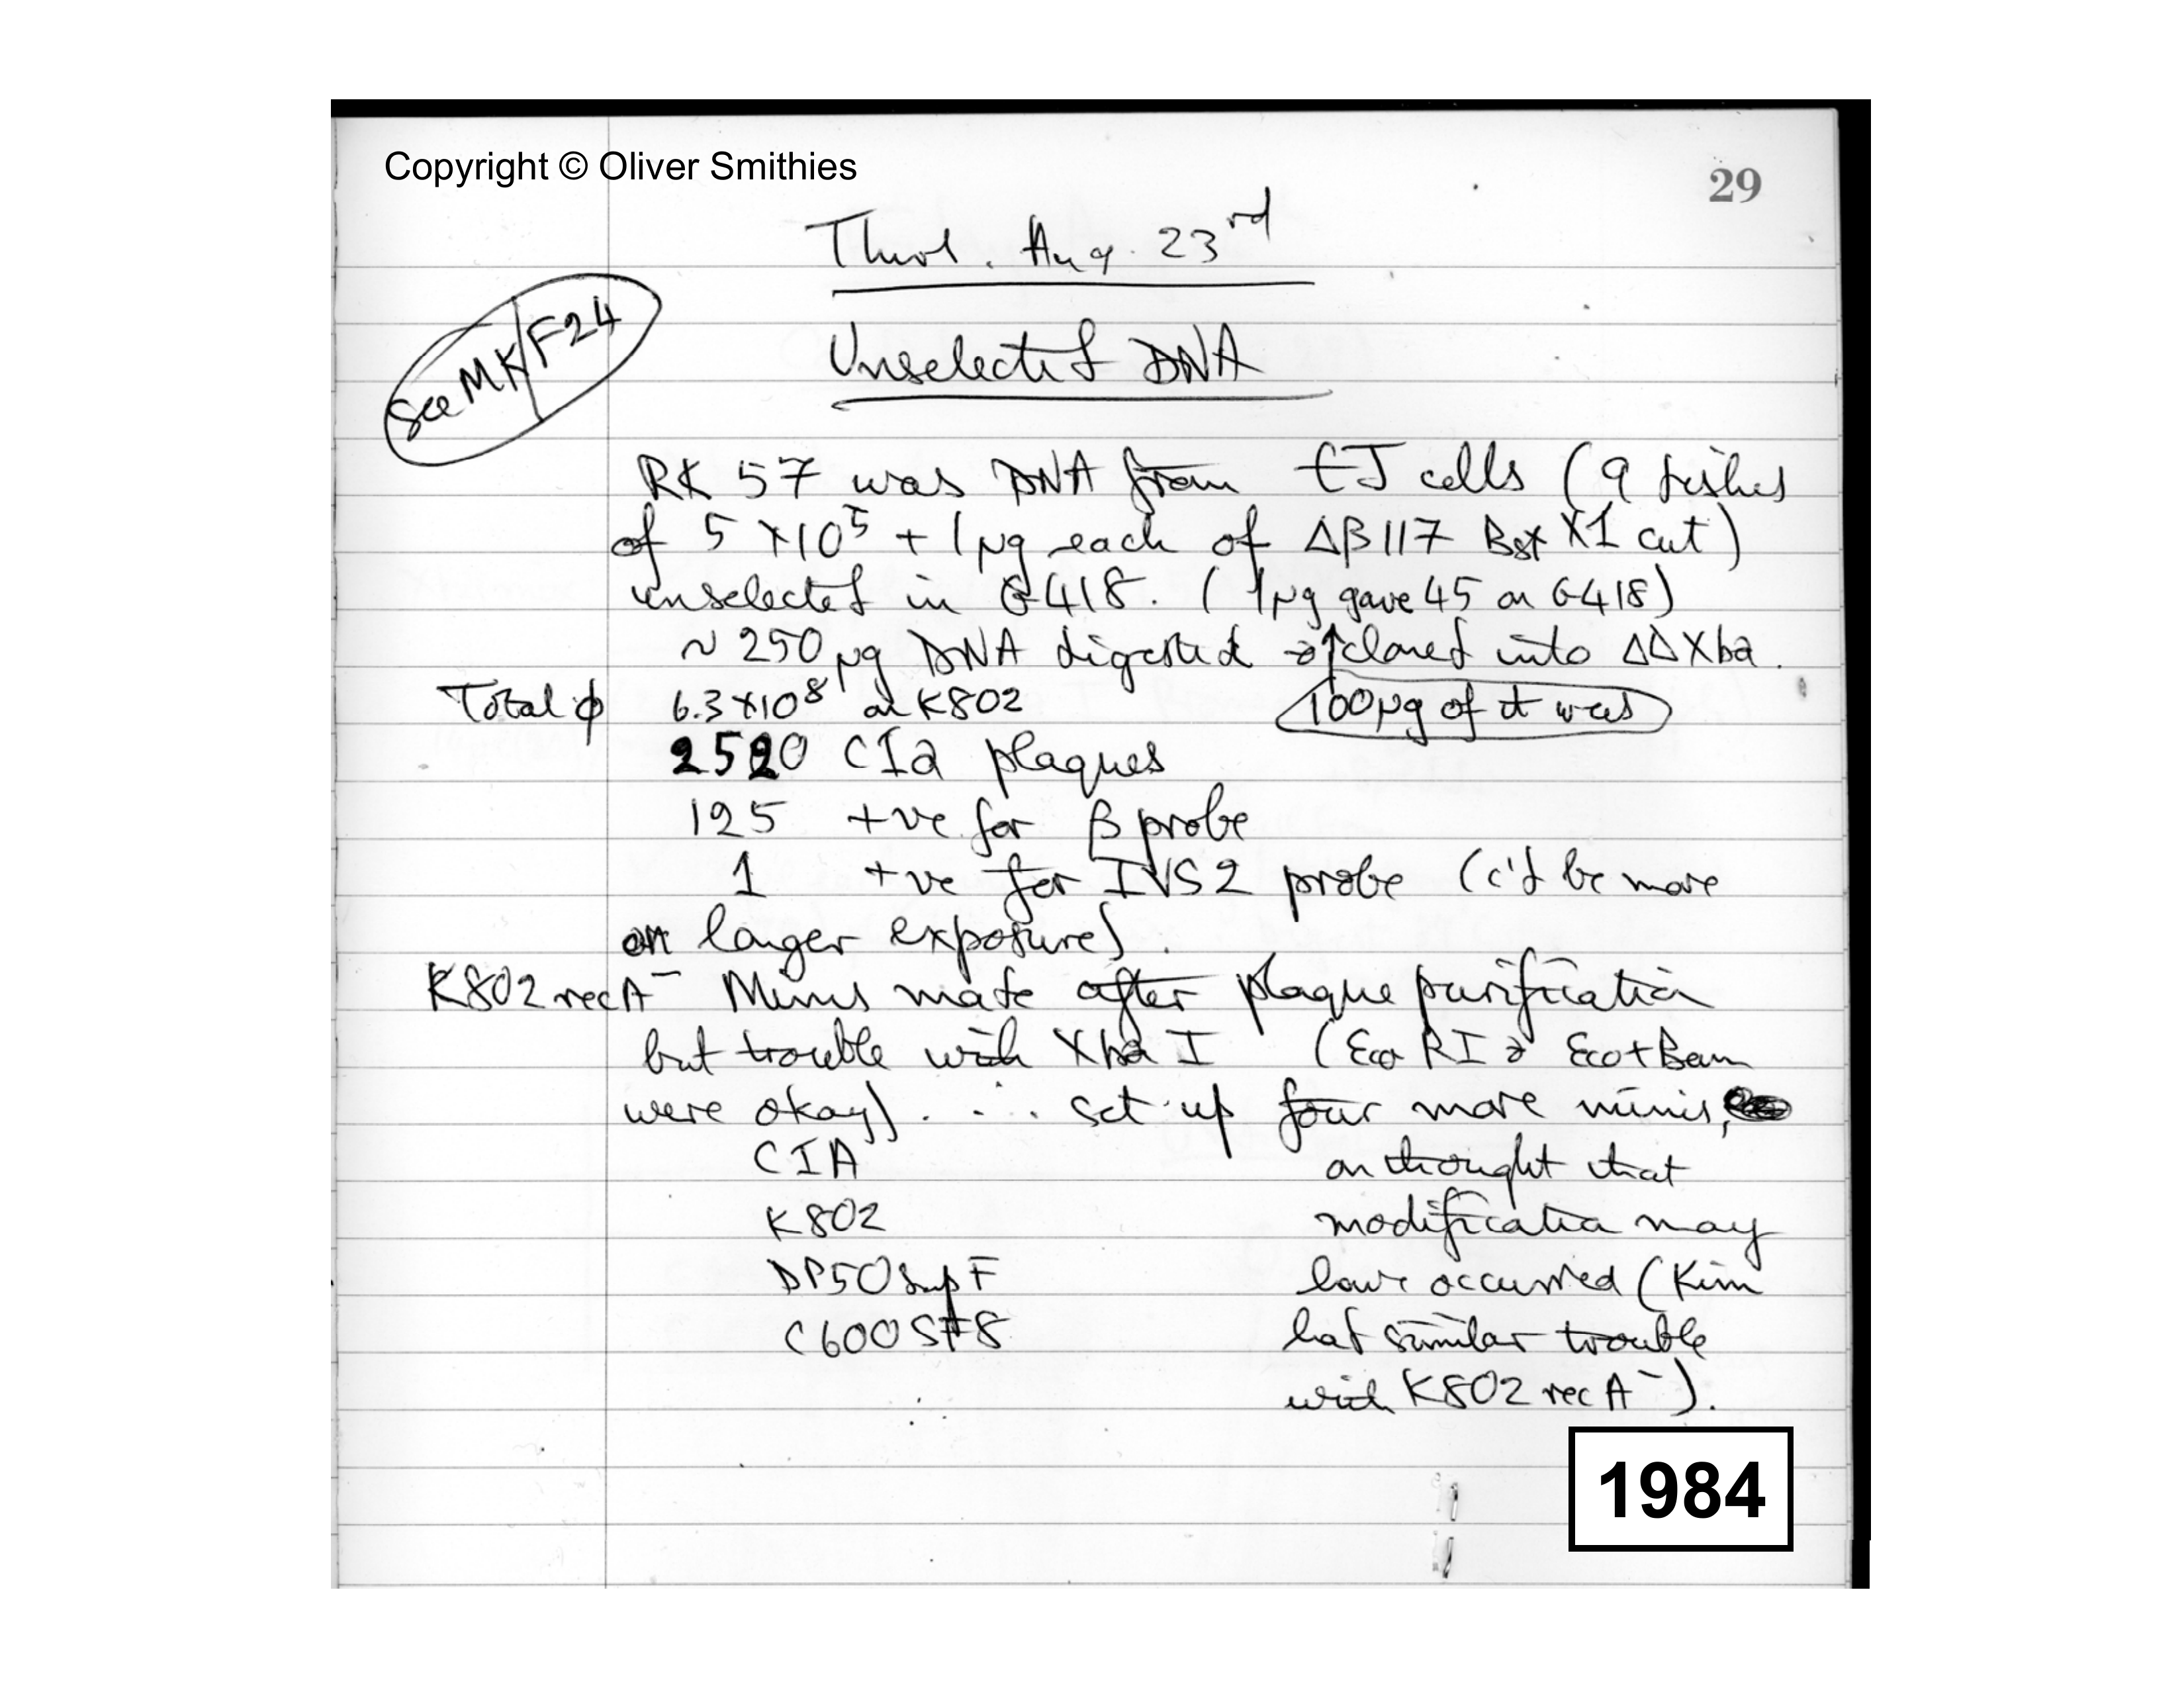 Copyright © Oliver Smithies
29
Thurs. Aug. 23rd
see MK/F24
Unselected DNA
RK 57 was DNA from EJ cells (9 dishes
of 5 × 10⁵ + 1 µg each of Δβ117 BstX1 cut)
unselected in G418. (1µg gave 45 on G418)
~ 250 µg DNA digested & ↑ cloned into ΔΔXba.
100µg of it was
Total ϕ 6.3 × 10⁸ on K802
2520 CIa plaques
125 +ve for β probe
1 +ve for IVS2 probe (c'd be more
on longer exposure).
K802 recA⁻ Minis made after plaque purification
but trouble with Xba I (Eco RI & Eco + Bam
were okay). ∴ set up four more minis,
CIA on thought that
K802 modification may
DP50 supF have occurred (Kim
C600 SF8 had similar trouble
with K802 recA⁻).
1984